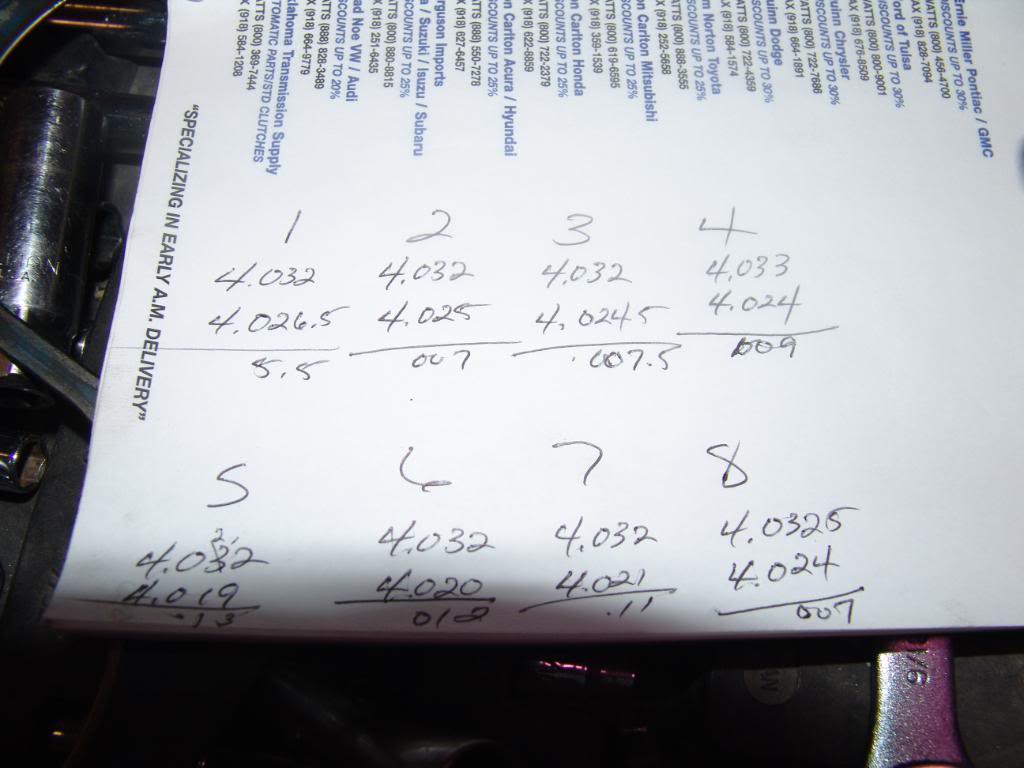 Ernie Miller Pontiac / GMC
DISCOUNTS UP TO 30%
WATTS (800) 459-4700
FAX (918) 828-7094
Ford of Tulsa
DISCOUNTS UP TO 30%
WATTS (800) 800-9001
AX (918) 976-8509
uinn Chrysler
ISCOUNTS UP TO 30%
ATTS (800) 722-7686
AX (918) 664-1891
uinn Dodge
ISCOUNTS UP TO 30%
WATTS (800) 722-4359
AX (918) 584-1574
m Norton Toyota
SCOUNTS UP TO 25%
ATTS (888) 868-3555
X (918) 252-5668
on Carlton Mitsubishi
SCOUNTS UP TO 25%
ATTS (800) 619-6595
X (918) 359-1539
on Carlton Honda
SCOUNTS UP TO 25%
ATTS (800) 722-2379
X (918) 622-8859
on Carlton Acura / Hyundai
SCOUNTS UP TO 25%
ATTS (888) 550-7278
X (918) 627-6457
rguson Imports
a / Suzuki / Isuzu / Subaru
SCOUNTS UP TO 25%
ATTS (800) 880-8815
X (918) 251-6435
ad Noe VW / Audi
SCOUNTS UP TO 20%
ATTS (888) 828-3489
X (918) 664-9779
klahoma Transmission Supply
TOMATIC PARTS/STD CLUTCHES
ATTS (800) 869-7444
X (918) 584-1208
"SPECIALIZING IN EARLY A.M. DELIVERY"
1 2 3 4
4.032 4.032 4.032 4.033
4.026.5 4.025 4.0245 4.024
5.5 007 .007.5 009
5 6 7 8
4.032 4.032 4.032 4.0325
4.019 4.020 4.021 4.024
.13 012 .11 007